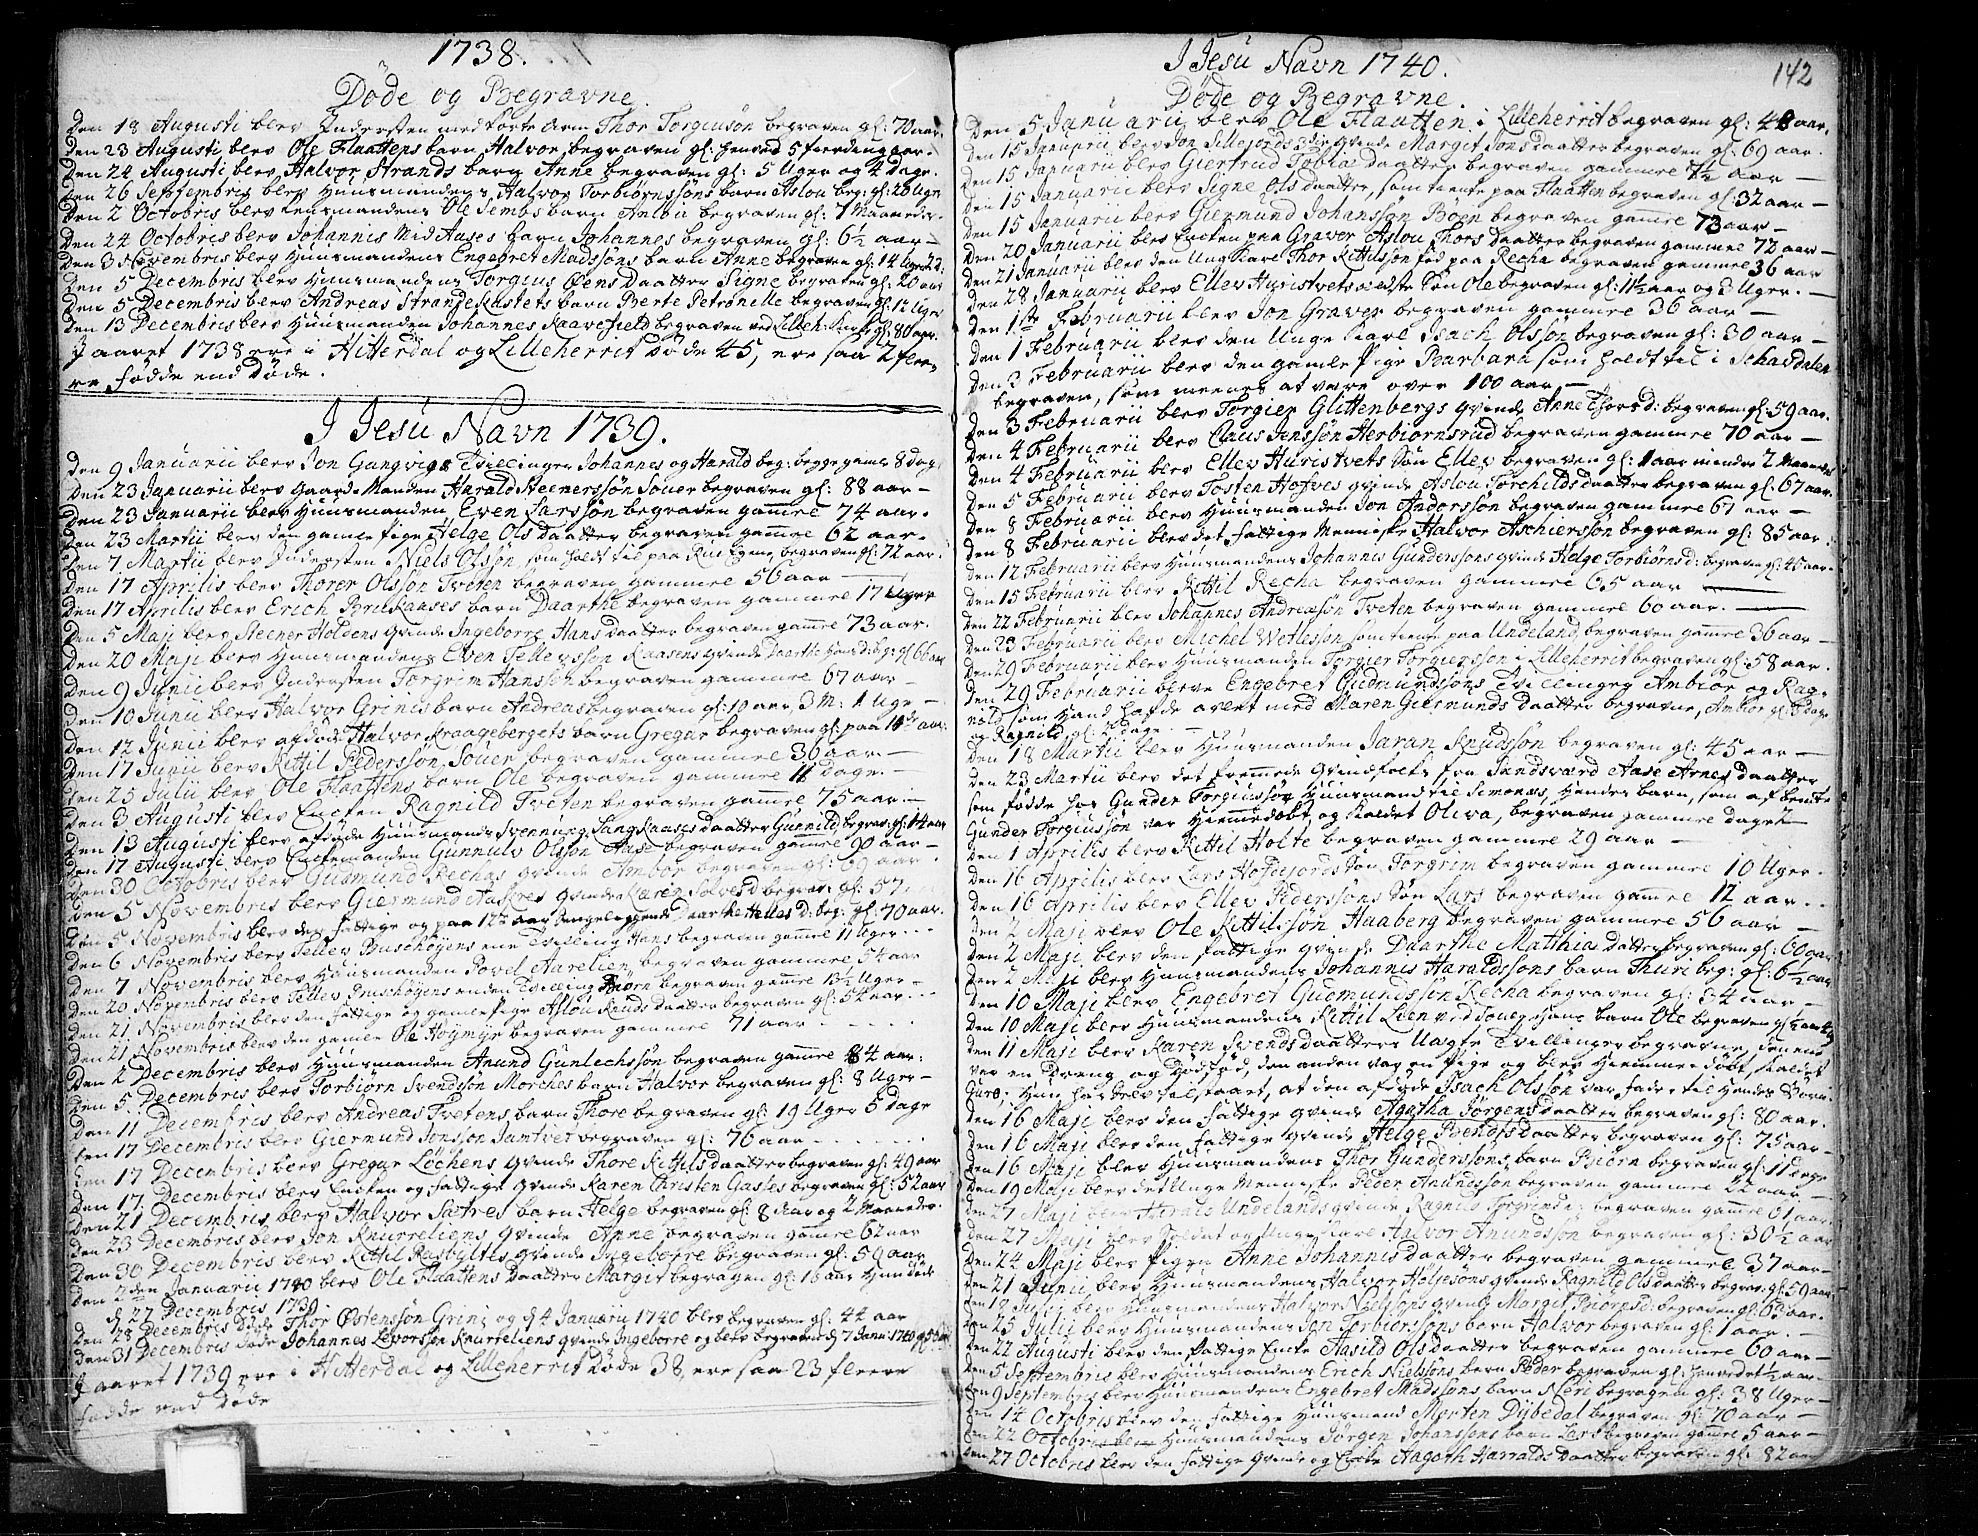 1738.
Døde og Begravne.
Den 18 Augusti blev Indersten med korte Arm Thor Torgiusøn begraven gl: 70 aar.
Den 23 Augusti blev Ole Flaattens barn Halvor begraven gl: henved 5 fierding aar.
Den 24 Augusti blev Halvor Strands barn Anne begraven gl: 5 Uger og 4 Dage.
Den 26 Septembris blev Huusmandens Halvor Torbiørnssøns barn Aslou beg: gl: 20 Uger
Den 2 Octobris blev Lensmandens Ole Sembs barn Aslou begraven gl: 7 Maaneder.
Den 24 Octobris blev Johannis Mid Aases barn Johannes begraven gl: 6½ aar —
Den 3 Novembris blev Huusmandens Engebret Madssøns barn Anne begraven gl: 14 Uger
Den 5 Decembris blev Huusmandens Torgius Øens Daatter Signe begraven gl: 20 aar
Den 5 Decembris blev Andreas Strandekastets barn Berte Petronille begraven gl: 12 Uger
Den 13 Decembris blev Huusmanden Johannes Raavefield begraven ved Lilleh: Kirke gl: 80 aar.
I aaret 1738 ere i Hitterdal og Lilleherrit Døde 45, ere saa 2 flee-
re fødde end Døde.
I Jesu Navn 1739.
Den 9 Januarii blev Jon Gangvigs Tvillinger Johannes og Harald beg: begge gamle 8 dag
Den 23 Januarii blev Gaard-Manden Harald Steenerssøn Souer begraven gl: 88 aar —
Den 23 Januarii blev Huusmanden Even Larssøn begraven gamre 74 aar.
Den 23 Martii blev den gamle pige Helge Ols daatter begraven gamre 62 aar.
Den 7 Martii blev Indersten Niels Olssøn, som holdt til paa begraven gl: 72 aar.
Den 17 Aprilis blev Thorer Olssøn Tveten begraven gammre 56 aar
Den 17 Aprilis blev Erich Breikaases barn Daarthe begraven gammre 17 Uger
Den 5 Maji blev Steener Holdens Qvinde Ingeborre Hans daatter begraven gamre 73 aar.
Den 20 Maji blev Huusmandens Even Tellevssøn Kaasens Qvinde Daarthe Hans D: beg: gl 66 aar
Den 9 Junii blev Indersten Torgrim Hanssøn begraven gammre 67 aar —
Den 10 Junii blev Halvor Grinis barn Andreas begraven gl: 10 aar, 3 M: 1 Uge —
Den 12 Junii blev afdøde Halvor Kraagebergets barn Gregar begraven gl: paa 11te aar
Den 17 Junii blev Kittil Pedersøn Souer begraven gammre 36 aar —
Den 25 Julii blev Ole Flaattens barn Ole begraven gammre 11 Dage. —
Den 3 Augusti blev Encken Ragnild Tveten begraven gamre 75 aar —
Den 13 Augusti blev afdøde Huusmands Svennung Langkaases daatter Gunnild begrav: gl: 14 aar
Den 17 Augusti blev Enckemanden Gunnulv Olssøn Aase begraven gamre 90 aar —
Den 30 Octobris blev Gudmund Rechas qvinde Ambor begraven gl: 69 aar
Den 5 Novembris blev Giermund Aaskres Qvinde Karen Solvesd: begrav: gl: 57
Den 5 Novembris blev den fattige og paa 12te aar Sengeliggende Daarthe Helles D: beg: gl: 70 aar.
Den 6 Novembris blev Tellev Buschøyens ene Tvilling Hans begraven gamre 11 Uger
Den 7 Novembris blev Huusmanden Povel Aarelien begraven gamre 54 aar
Den 20 Novembris blev Tellev Buschøyens anden Tvilling Biørn begraven gamre 13½ Uger —
Den 21 Novembris blev den fattige og gamle pige Aslou Knuds daatter begraven gl: 54 aar
Den 21 Novembris blev den gamle Ole Høymyr begraven gammre 71 aar
Den 2 Decembris blev Huusmanden Anund Gunlechssøn begraven gamre 84 aar:
Den 5 Decembris blev Torbiørn Svendssøn Morches barn Halvor begraven gl: 8 Uger —
Den 11 Decembris blev Andreas Tvetens barn Thore begraven gl: 19 Uger 6 Dage
Den 17 Decembris blev Giermund Jonssøn Jamtvet begraven gl: 76 aar
Den 17 Decembris blev Gregar Løchens Qvinde Thore Kittils daatter begraven gl: 49 aar
Den 17 Decembris blev Encken og fattige Qvinde Karen Christen Gastes begraven gl: 52 aar
Den 21 Decembris blev Halvor Sætres barn Helge begraven gl: 8 Aar og 2 Maaneder.
Den 23 Decembris blev Jon Knurreliens Qvinde Anne begraven gamre 62 aar
Den 30 Decembris blev Kittil Rasbyltes Qvinde Ingeborre begraven gl: 50 aar
Den 2den Januarii 1740 blev Ole Flaattens Daatter Margit begraven gl: 16 aar Hun døde
d 27 Decembris 1739.
Den 28 Decembris døde Thor Østenssøn Grini og d 4 Januarii 1740 blev begraven gl: 44 aar
Den 31 Decembris døde Johannes Levorssøn Knurreliens Qvinde Ingeborre og blev begraven d 7 Janu: 1740
I aaret 1739 ere i Hitterdal og Lilleherrit Døde 38, ere saa 23 fleere
fødde end Døde
142
I Jesu Navn 1740.
Døde og Begravne.
Den 5 Januarii blev Ole Flaatten i Lilleherrit begraven gl: 48 aar.
Den 15 Januarii blev Jon Lillejords Qvinde Margit Jons daatter begraven gl: 69 aar.
Den 15 Januarii blev Giertrud Tobias daatter begraven gammre 4½ aar —
Den 15 Januarii blev Signe Ols daatter, som tiente paa Flaatten begraven gl: 32 aar —
Den 15 Januarii blev Giermund Johanssøn Bøen begraven gamre 73 aar —
Den 20 Januarii blev Encken paa Graver Aslou Thors daatter begraven gammre 72 aar —
Den 21 Januarii blev den Ung Karl Thor Kittilssøn fød paa Recha begraven gammre 36 aar
Den 28 Januarii blev Ellev Huristvets eldste Søn Ole begraven gl: 11½ aar og 3 Uger. —
Den 1ste Februarii blev Jon Graver begraven gammre 36 aar —
Den 1 Februarii blev den Unge Karl Isach Olssøn begraven gl: 30 aar —
Den 3 Februarii blev den gamle pige Barbara som holdt til i Schavdalen
begraven, som meenes at være over 100 aar —
Den 3 Februarii blev Torgier Glittenbergs Qvinde Anne Thorsd: begraven gl: 59 aar.
Den 4 Februarii blev Claus Jenssøn Herbiørnsrud begraven gammre 70 aar —
Den 4 Februarii blev Ellev Huristvets Søn Ellev begraven gl: 1 aar mindre 2 Maaneder
Den 5 Februarii blev Tosten Hofves Qvinde Aslou Torchilds daatter begraven gl: 67 aar.
Den 8 Februarii blev Huusmanden Jon Anderssøn begraven gammre 61 aar —
Den 8 Februarii blev det fattige Menniske Halvor Aschierssøn begraven gl: 85 aar.
Den 12 Februarii blev Huusmandens Johannis Gunderssøns Qvinde Helge Torbiørnsd: begraven gl: 45 aar —
Den 15 Februarii blev Kittil Recha begraven gammre 65 aar
Den 22 Februarii blev Johannes Andreassøn Tveten begraven gammre 60 aar. —
Den 23 Februarii blev Michel Wetlessøn som tiente paa Undeland, begraven gamre 36 aar —
Den 29 Februarii blev Huusmanden Torgier Torgierssøn i Lilleherrit begraven gl: 58 aar.
Den 29 Februarii bleve Engebret Gudmundssøns Tvillinger Ambiør og Rag-
nild som Hand hafde avlet med Maren Giermunds daatter begravne, Ambiør gl: dage
og Ragnild gl: dage.
Den 18 Martii blev Huusmanden Jaran Knudssøn begraven gl: 45 aar —
Den 23 Martii blev det fremmede Qvindfolks fra Sandsværd Aase Arnes daatter
som fødde hos Gunder Torgiussøn Huusmand til Simones, Hendes barn, som af bemte
Gunder Torgiussøn var Hiemmedøbt, og kaldet Oliva, begraven gammre dage
Den 1 Aprilis blev Kittil Holte begraven gammre 29 aar —
Den 16 Aprilis blev Lars Hofdejords Søn Torgrim begraven gammre 10 Uger.
Den 16 Aprilis blev Ellev Pederssøns Søn Lars begraven gamre 12 aar
Den 2 Maji blev Ole Kittilssøn Haaberg begraven gammre 56 aar
Den 2 Maji blev den fattige Qvinde Daarthe Mathia datter begraven gl: 60 aar
Den 2 Maji blev Huusmandens Johannis Haraldssøns barn Thuri beg: gl: 6½ aar
Den 10 Maji blev Engebret Gudmundssøn Recha begraven gl: 34 aar —
Den 10 Maji blev Huusmandens Kittil Lien ved barn Ole begraven gl ½ aar
Den 11 Maji blev Karen Svends daatters Uægte Tvillinger begravne, den ene
var en Dreng og Dødfød, den anden var en Pige og blev Hiemme-døbt, kaldet
Guro; Hun har blev tilstaaet, at den afdøde Isach Olssøn var fader til Hendes Børn.
Den 16 Maji blev den fattige Qvinde Agatha Jørgens daatter begraven gl: 80 aar.
Den 16 Maji blev den fattige Qvinde Helge Bendts daatter begraven gl: 75 aar —
Den 16 Maji blev Huusmandens Thor Gunderssøns barn Biørn begraven gl: 11 dage
Den 19 Maji blev det Unge Menniske Peder Anundssøn begraven gammre 22 aar —
Den 27 Maji blev Undelands qvinde Ragnild begraven gamre 61 aar —
Den 27 Maji blev Soldat og Unge Karl Halvor Anundssøn begraven gl: 30½ aar
Den 24 Maji blev Pigen Anne Johannis daatter begraven gammre 37 aar —
Den 21 Junii blev Huusmandens Halvor Holjesøns Qvinde Ragnild Ols daatter begrav: gl: 59 aar.
Den 18 Julii blev Huusmandens Halvor Nielssøns Qvinde Margit Biørnsd: begraven gl: 62 aar.
Den 25 Julii blev Huusmandens Jon Torbiørssøns barn Halvor begraven gl: 1 aar. —
Den 22 Augusti blev den fattige Encke Aasild Ols daatter begraven gammre 60 aar —
Den 5 Septembris blev Huusmandens Erich Nielssøns barn Peder begraven gl: henved et ½ aar —
Den 9 Septembris blev Huusmandens Engebret Madssøns barn Neri begraven gl: 38 Uger —
Den 14 Octobris blev den fattige Huusmand Morten Dybedal begraven gl: 70 aar —
Den 22 Octobris blev Huusmandens Jørgen Johanssøns barn Lars begraven gamre 5 aar —
Den 27 Octobris blev den fattige Qvinde og Encke Aagoth Harralds daatter begraven gl: 82 aar